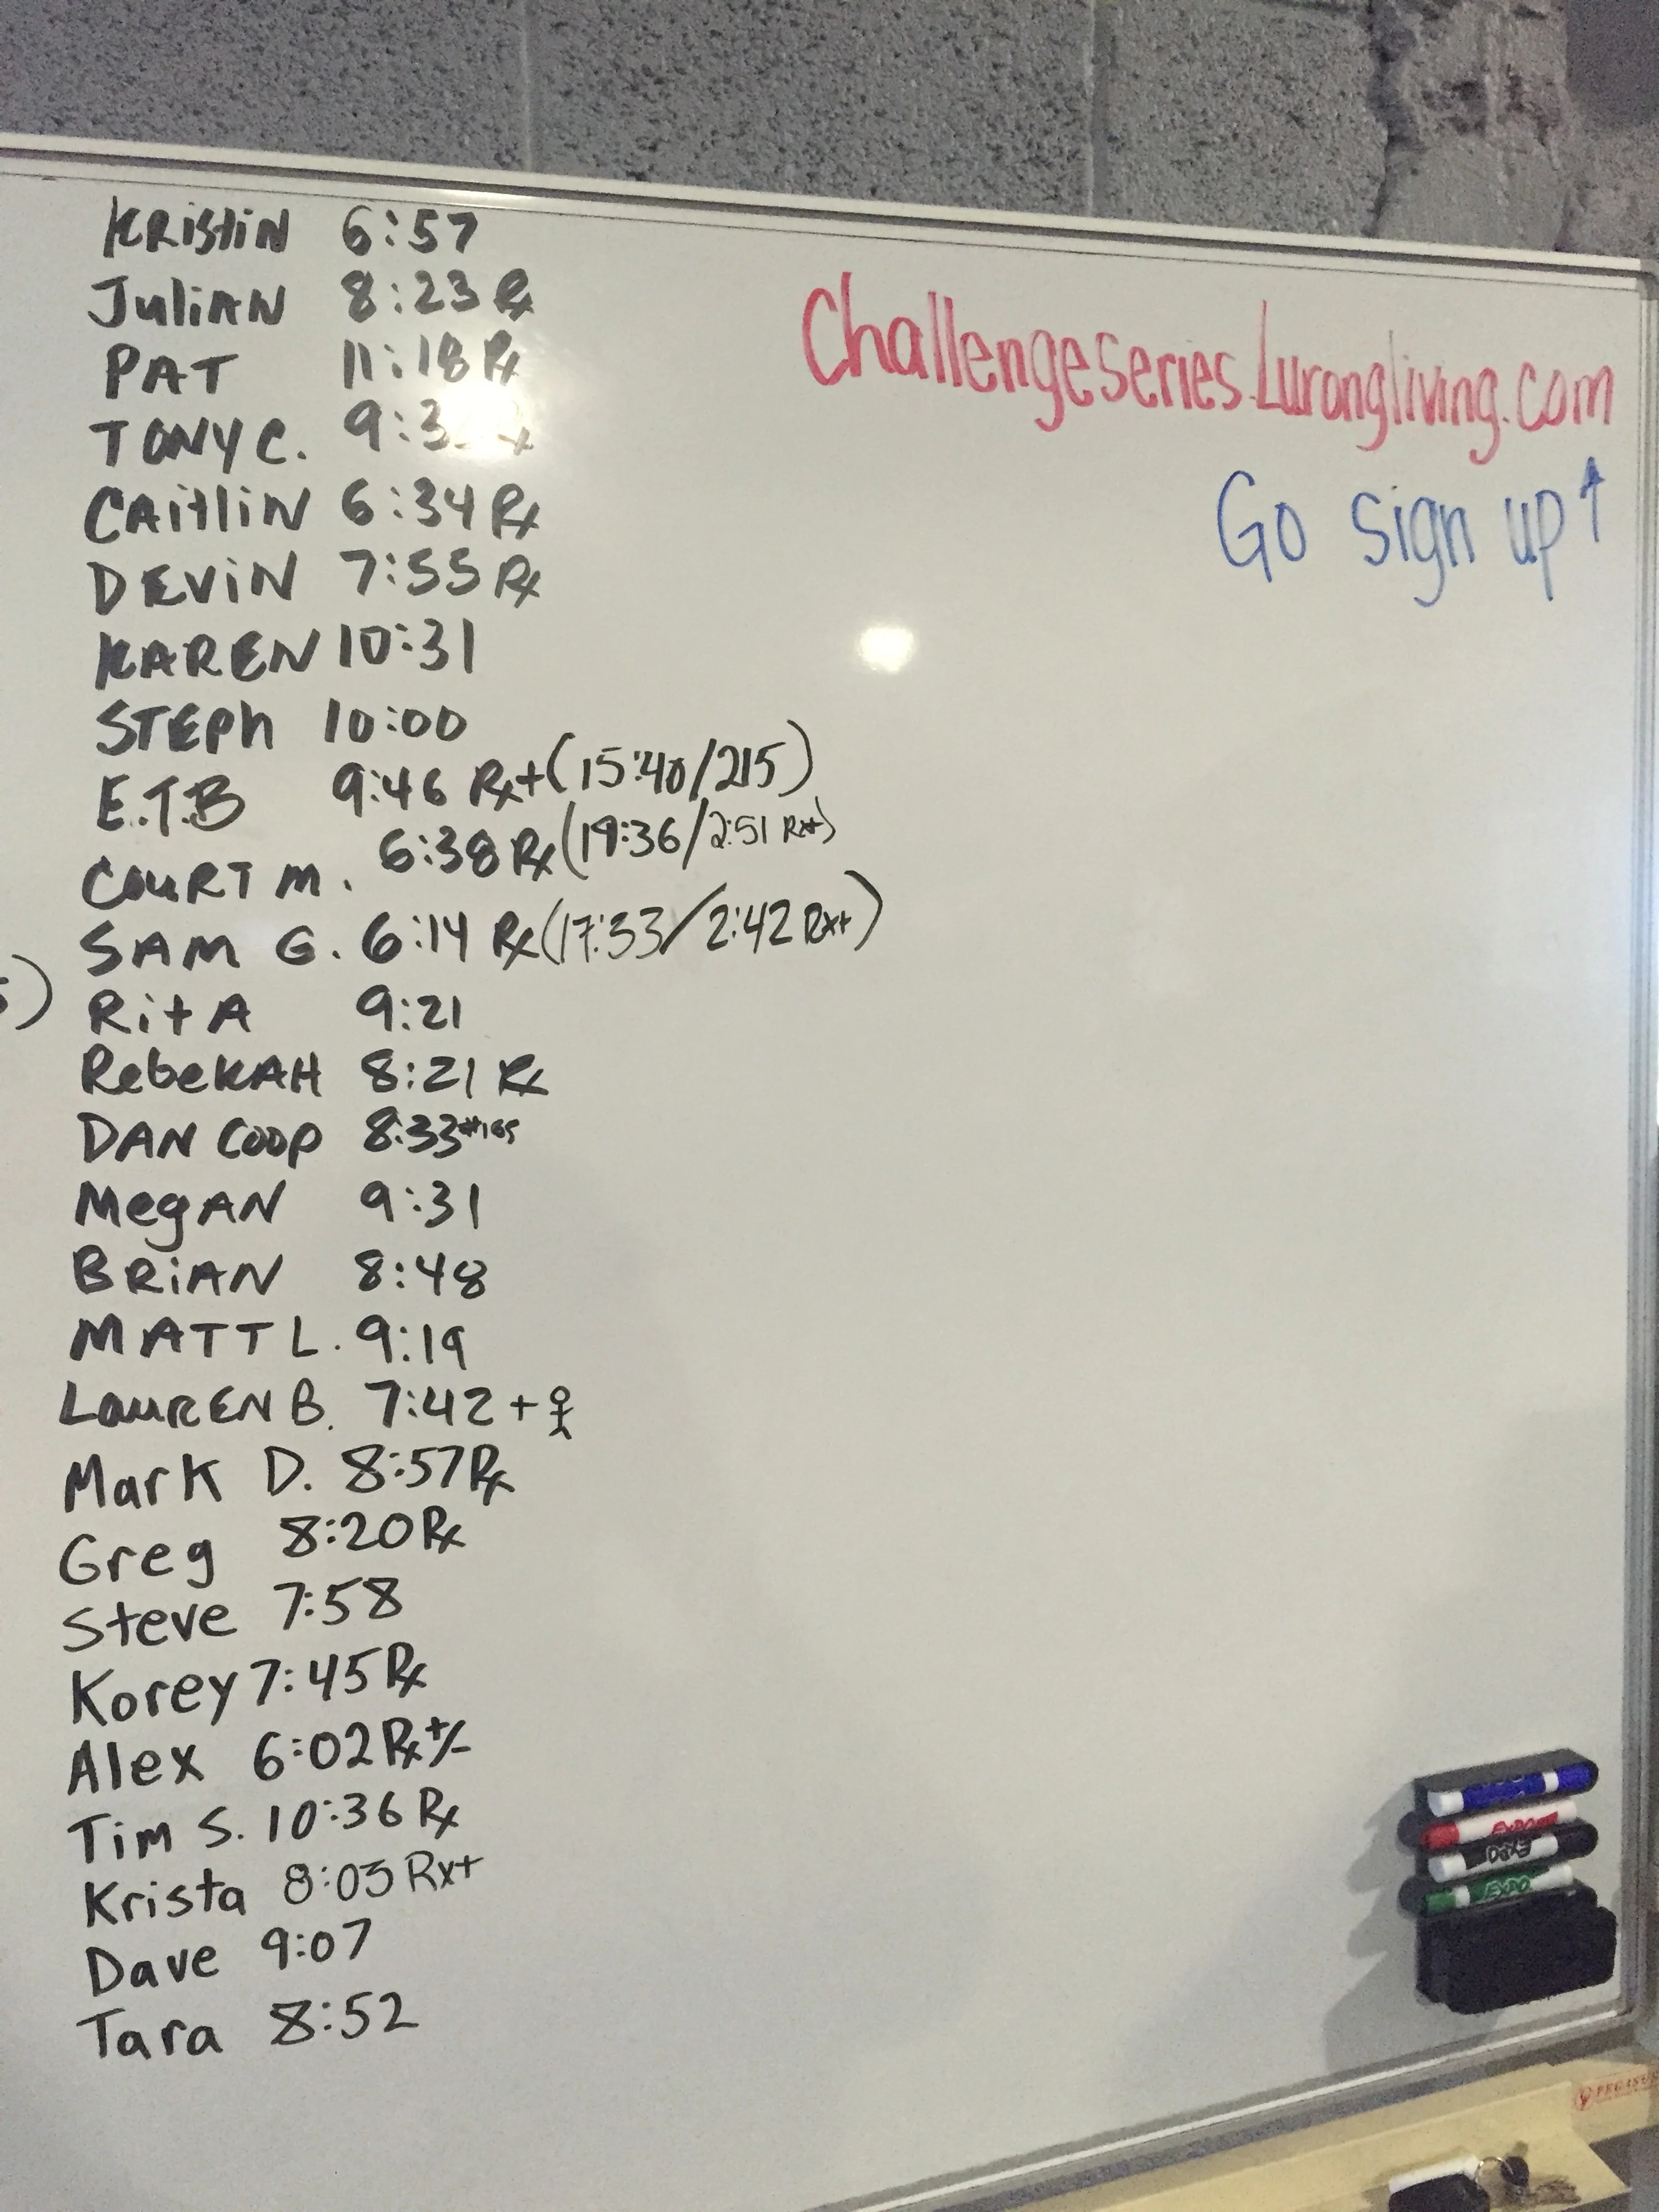 KRistiN 6:57
JuliAN 8:23 Rx
PAT 11:18 Rx
TONY C.
CAitliN 6:34 Rx
DEViN 7:55 Rx
KAREN 10:31
STEPh 10:00
E.T.B 9:46 Rx+ (15:40/215)
COuRT M. 6:38 Rx (19:36/2:51 Rx+)
SAM G. 6:14 Rx (17:33/2:42 Rx+)
RitA 9:21
RebeKAH 8:21 Rx
DAN COOP 8:33
MegAN 9:31
BRiAN 8:48
MATT L. 9:19
LauRENB. 7:42 +
Mark D. 8:57 Rx
Greg 8:20 Rx
Steve 7:58
Korey 7:45 Rx
Alex 6:02 Rx +/-
Tim S. 10:36 Rx
Krista 8:03 Rx+
Dave 9:07
Tara 8:52
Challengeseries.Lurongliving.com
Go sign up↑
EXPO
EXPO
EXPO
PEGASUS